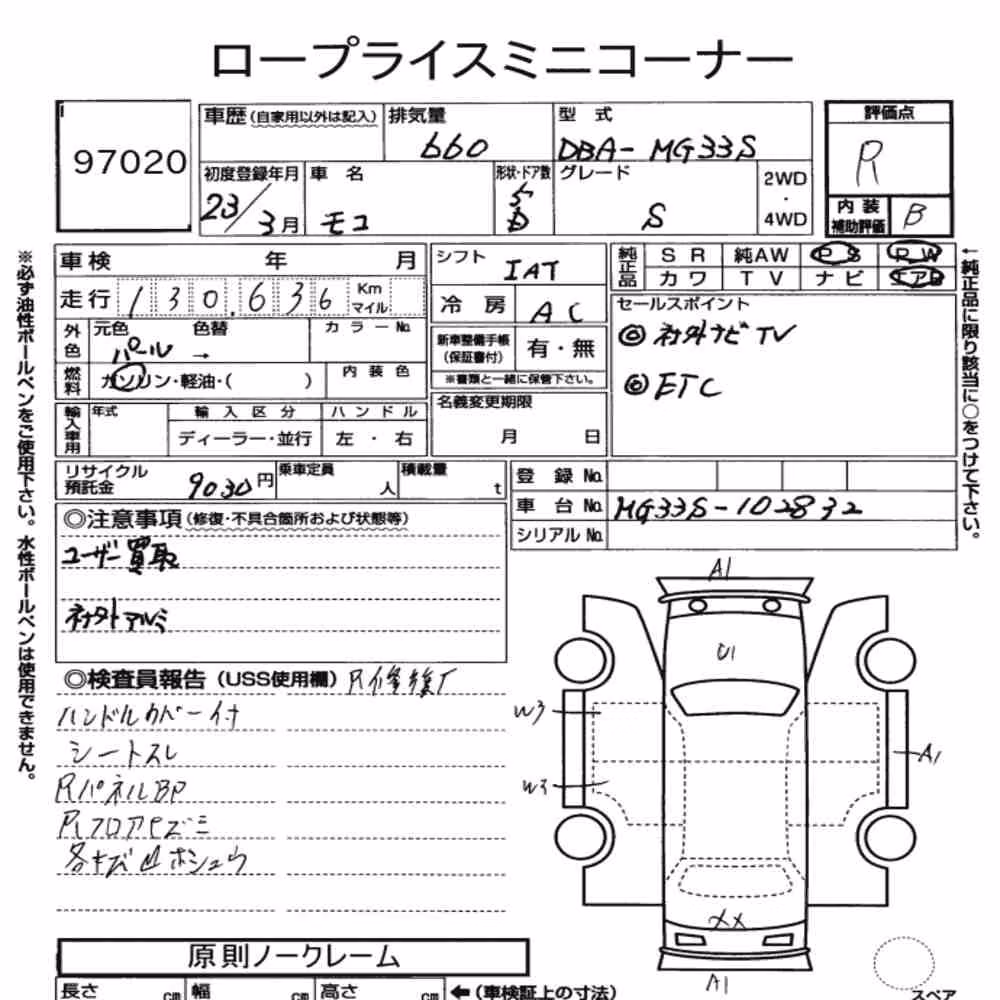 ロープライスミニコーナー
97020
車歴(自家用以外は記入)
排気量
660
型 式
DBA-MG33S
評価点
R
初度登録年月
23/3月
車 名
モコ
形状・ドア数
5
D
グレード
S
2WD
・
4WD
内 装
補助評価
B
車 検 年 月
走行 130,636 Km
マイル
シフト
IAT
冷 房
AC
純正品
S R 純AW P S P W
カ ワ T V ナ ビ エアB
外色
元色 色替
パール →
カラーNo.
燃料
ガソリン・軽油・( )
内 装 色
新車整備手帳
(保証書付)
有・無
※書類と一緒に保管下さい。
セールスポイント
◎ 社外ナビTV
◎ ETC
輸入車用
年式
輸 入 区 分
ディーラー・並行
ハ ン ド ル
左 ・ 右
名義変更期限
月 日
リサイクル
預託金
9030円
乗車定員
人
積載量
t
登 録 No.
車 台 No. MG33S-102832
シリアル No.
◎注意事項(修復・不具合箇所および状態等)
ユーザー買取
社外アルミ
◎検査員報告(USS使用欄) R修復
ハンドルカバー付
シートスレ
RパネルBP
各キズ凹ホシュウ
A1
U1
W3
W3
A1
XX
A1
スペア
原則ノークレーム
長さ cm
幅 cm
高さ cm
←(車検証上の寸法)
※必ず油性ボールペンをご使用下さい。水性ボールペンは使用できません。
←純正品に限り該当に○をつけて下さい。